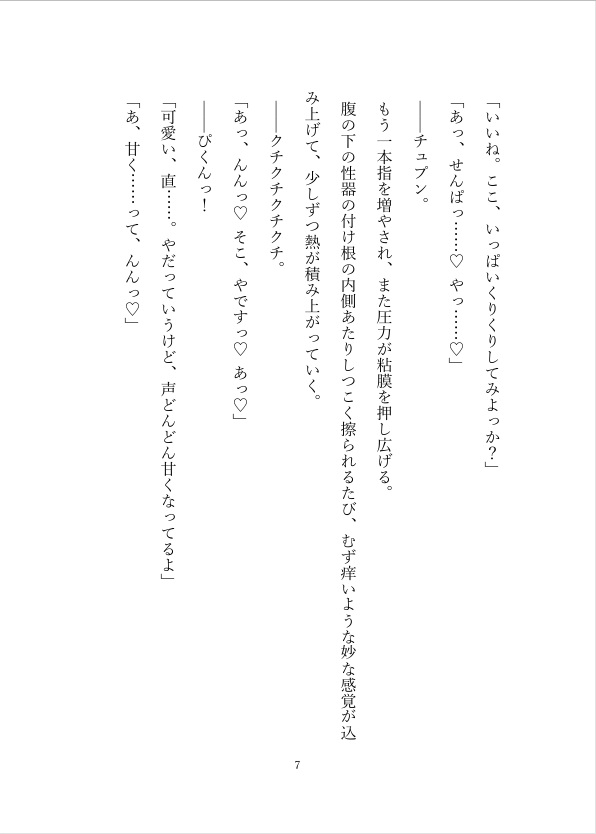 「いいね。ここ、いっぱいくりくりしてみよっか？」
「あっ、せんぱっ……♡ やっ……♡」
――チュプン。
もう一本指を増やされ、また圧力が粘膜を押し広げる。
腹の下の性器の付け根の内側あたりしつこく擦られるたび、むず痒いような妙な感覚が込
み上げて、少しずつ熱が積み上がっていく。
――クチクチクチクチ。
「あっ、んんっ♡ そこ、やですっ♡ あっ♡」
――ぴくんっ！
「可愛い、直……。やだっていうけど、声どんどん甘くなってるよ」
「あ、甘く……って、んんっ♡」
7